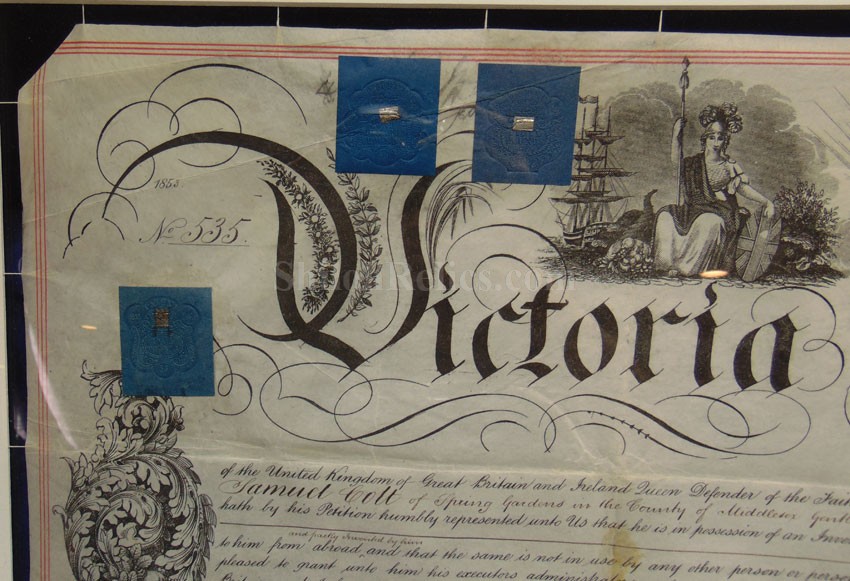 1853.
No 535.
Victoria
ShilohRelics.com
of the United Kingdom of Great Britain and Ireland Queen Defender of the Fait
Samuel Colt of Spring Gardens in the County of Middlesex Gentl
hath by his Petition humbly represented unto Us that he is in possession of an Inve
and partly invented by him
to him from abroad, and that the same is not in use by any other person or perso
pleased to grant unto him his executors administrat